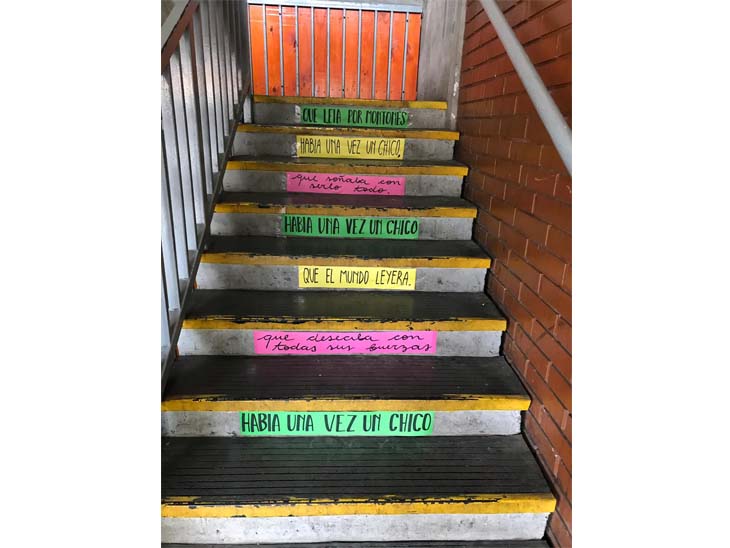 HABIA UNA VEZ UN CHICO
que deseaba con
todas sus fuerzas
QUE EL MUNDO LEYERA.
HABIA UNA VEZ UN CHICO
que soñaba con
serlo todo.
HABIA UNA VEZ UN CHICO,
QUE LEIA POR MONTONES